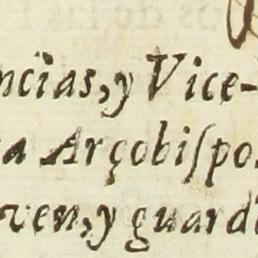 ncias, y Vice-
a Arçobiſpo
ven, y guard